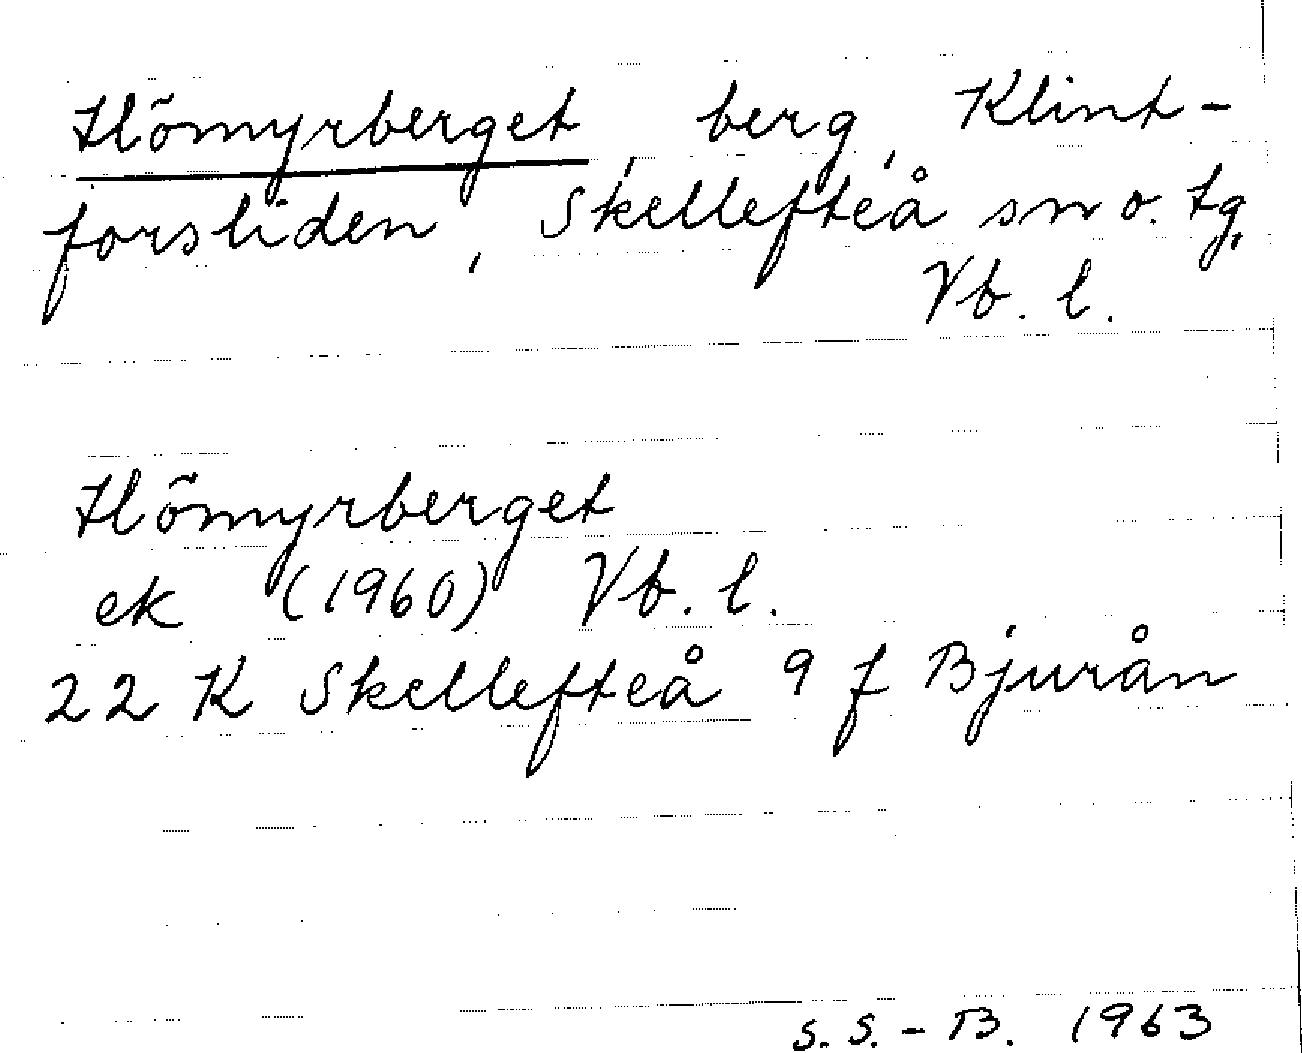 Hömyrberget, berg, Klint-
forsliden, Skellefteå sn o. tg,
Vb. l.
Hömyrberget
ek (1960) Vb. l.
22 K Skellefteå 9 f Bjurån
S. S.-B. 1963